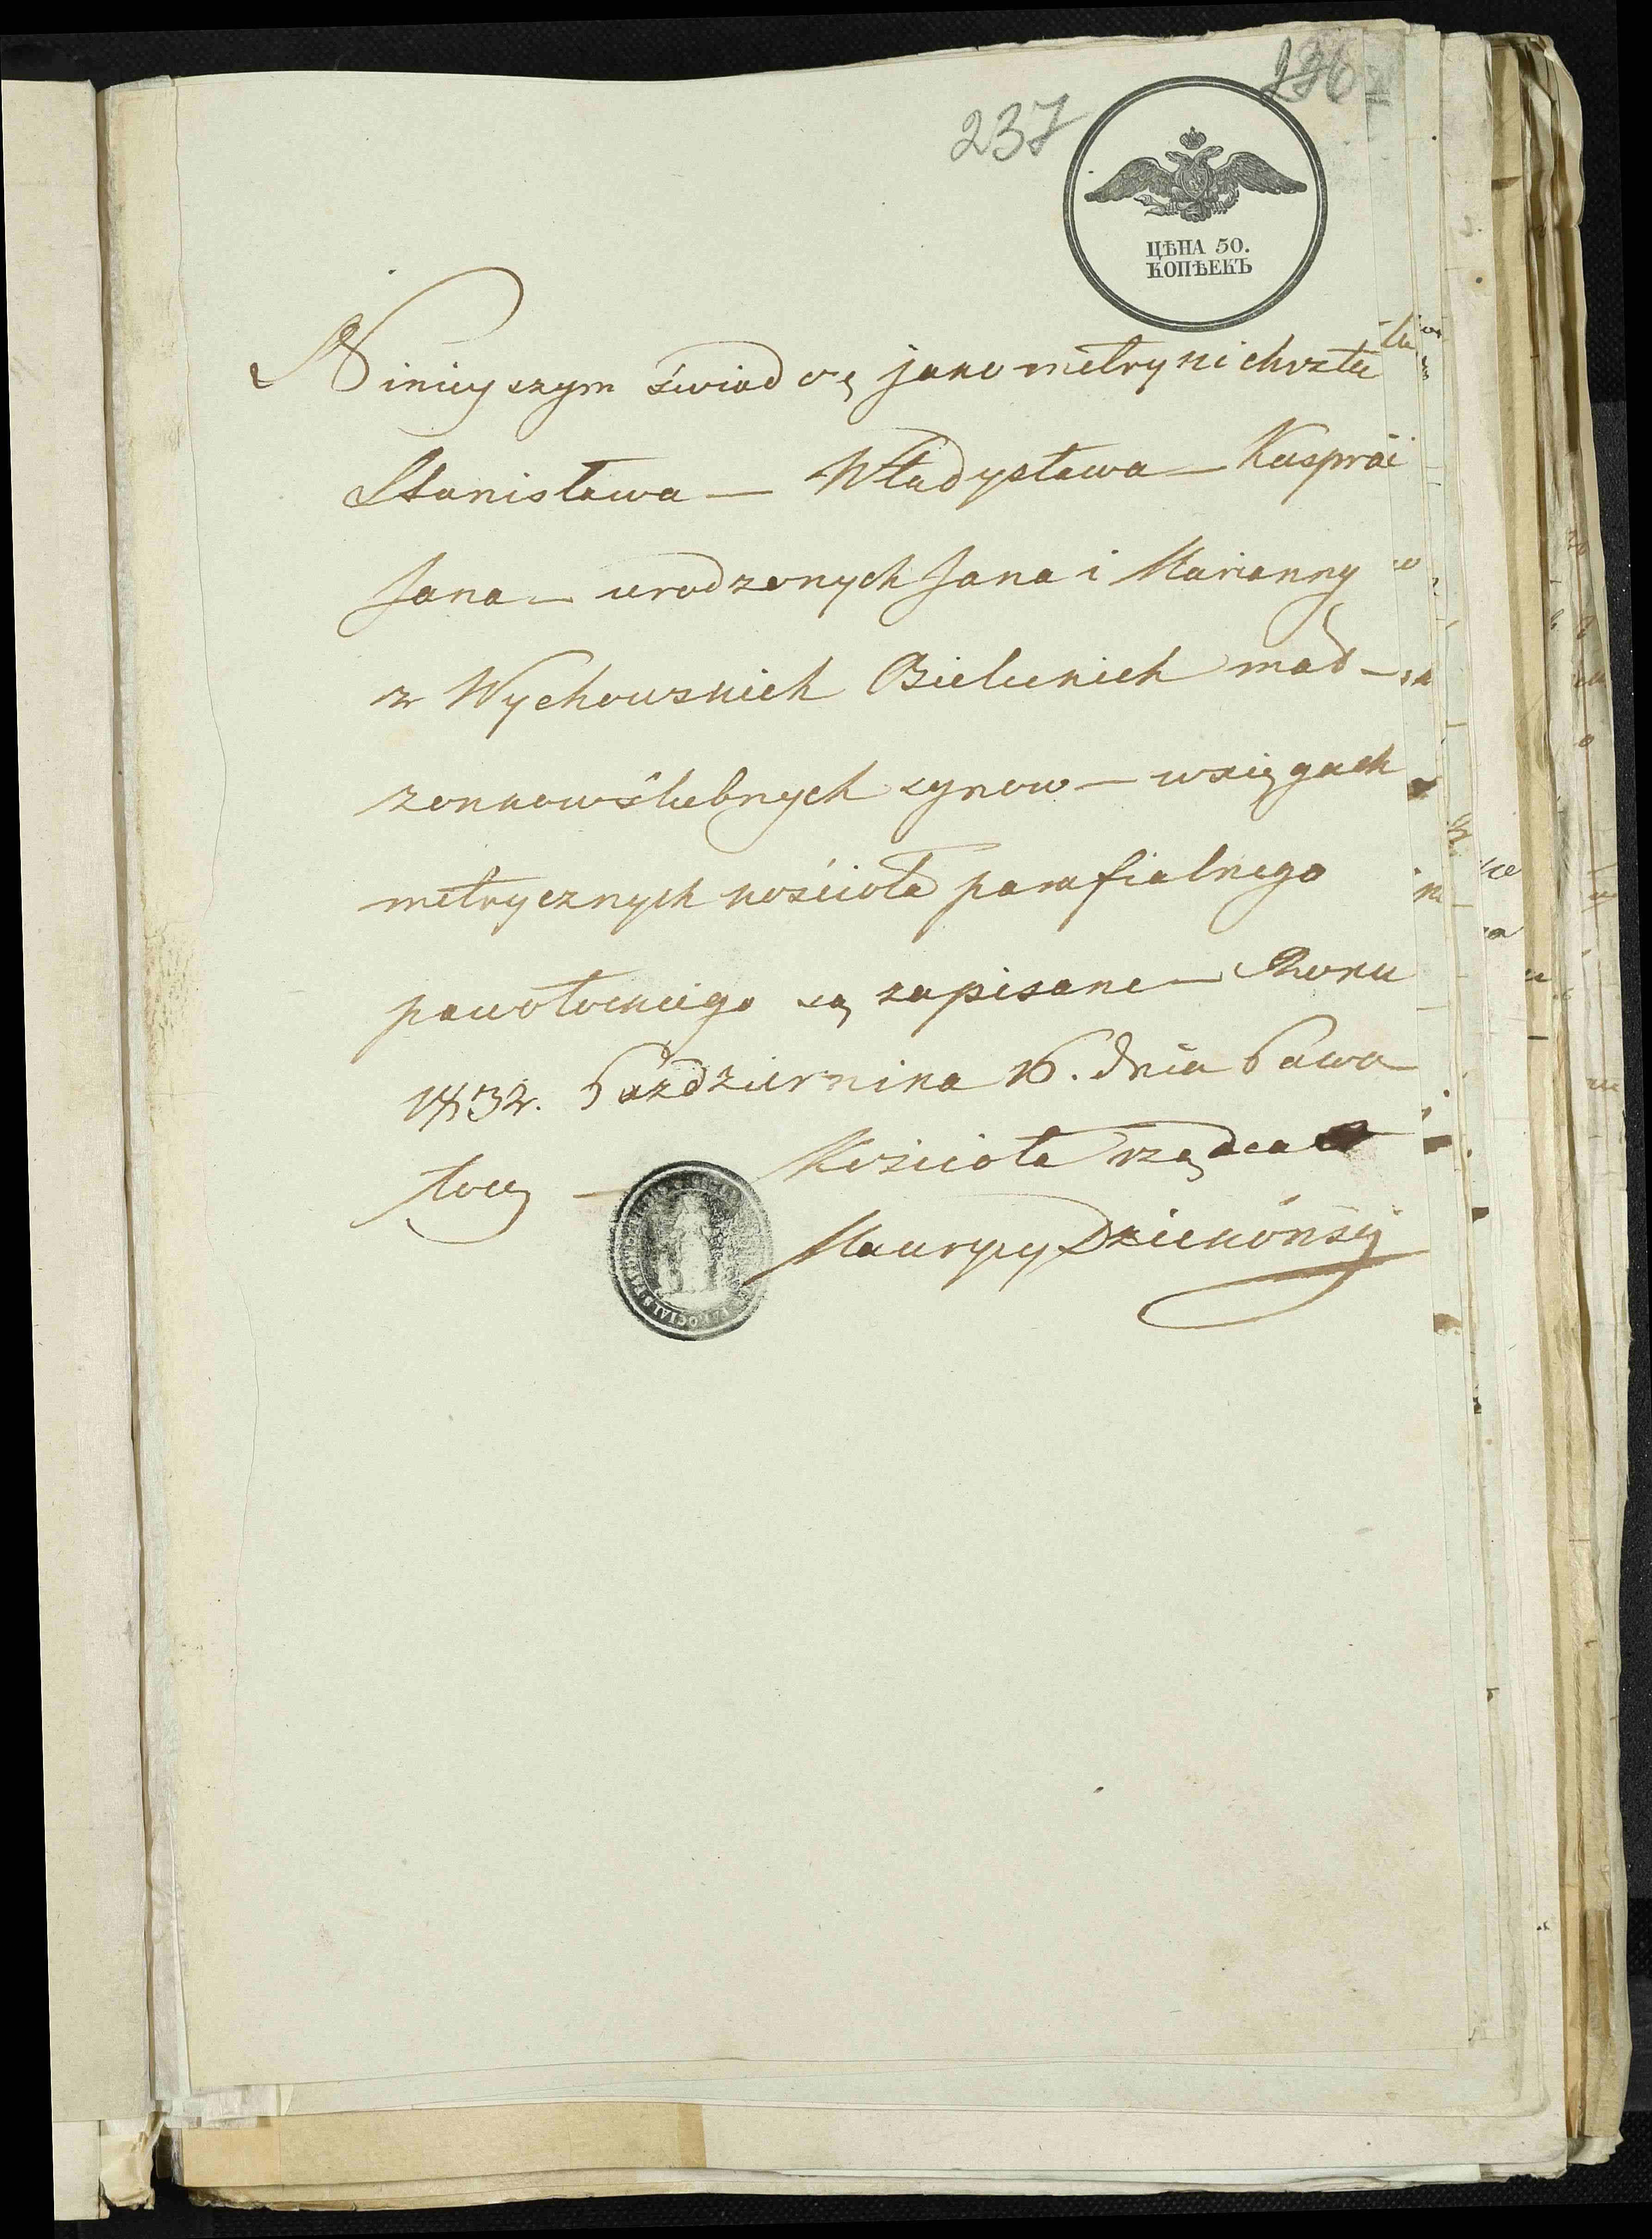 237
236
ЦѢНА 50.
КОПѢЕКЪ
Ninieyszym świadczę jako metryki chrztu
Stanisława — Władysława — Kaspra i
Jana — urodzonych Jana i Marianny
z Wychowskich Bielickich mał-
żonkow ślubnych synow — w xięgach
metrycznych kościoła parafialnego
pawołockiego są zapisane — Roku
1832. Października 16. dnia Pawo
łocz —
Kościoła rządca
Maurycy Dziekónski